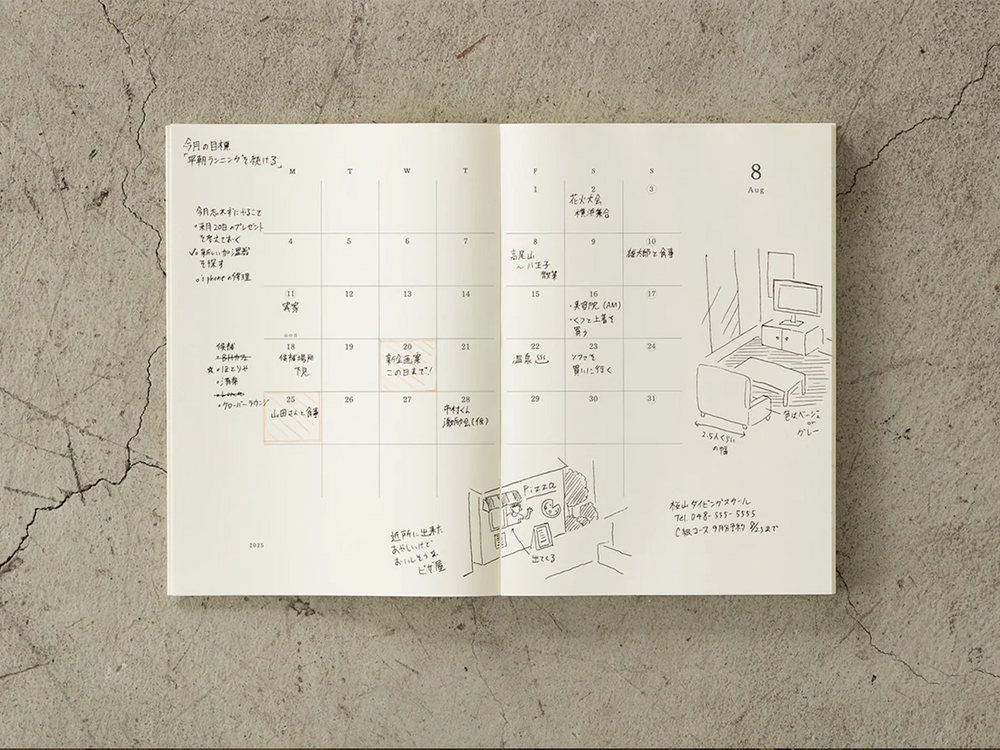 今月の目標
「早朝ランニングを続ける」
M T W T F S S
8
Aug
今月忘れずにやること
•来月20日のプレゼント
を考えておく
✓•新しい加湿器
を探す
•iphoneの修理
1 2 3
花火大会
横浜集合
4 5 6 7 8 9 10
高尾山
〜八王子
散策
雄太郎と食事
11 12 13 14 15 16 17
実家
・美容院(AM)
・くつと上着を
買う
山の日
18 19 20 21 22 23 24
候補場所
下見
新企画案
この日まで!
温泉
ソファを
買いに行く
候補
☆•ほとりや
•清楽
•クローバーラウンジ
25 26 27 28 29 30 31
山田さんと食事
中村くん
激励会(仮)
色はベージュ
or
グレー
2.5人くらい
の幅
Pizza
出てくる
近所に出来た
あやしいけど
おいしそうな
ピザ屋
桜山ダイビングスクール
Tel 048-555-5555
C級コース 9月分予約 8/25まで
2025